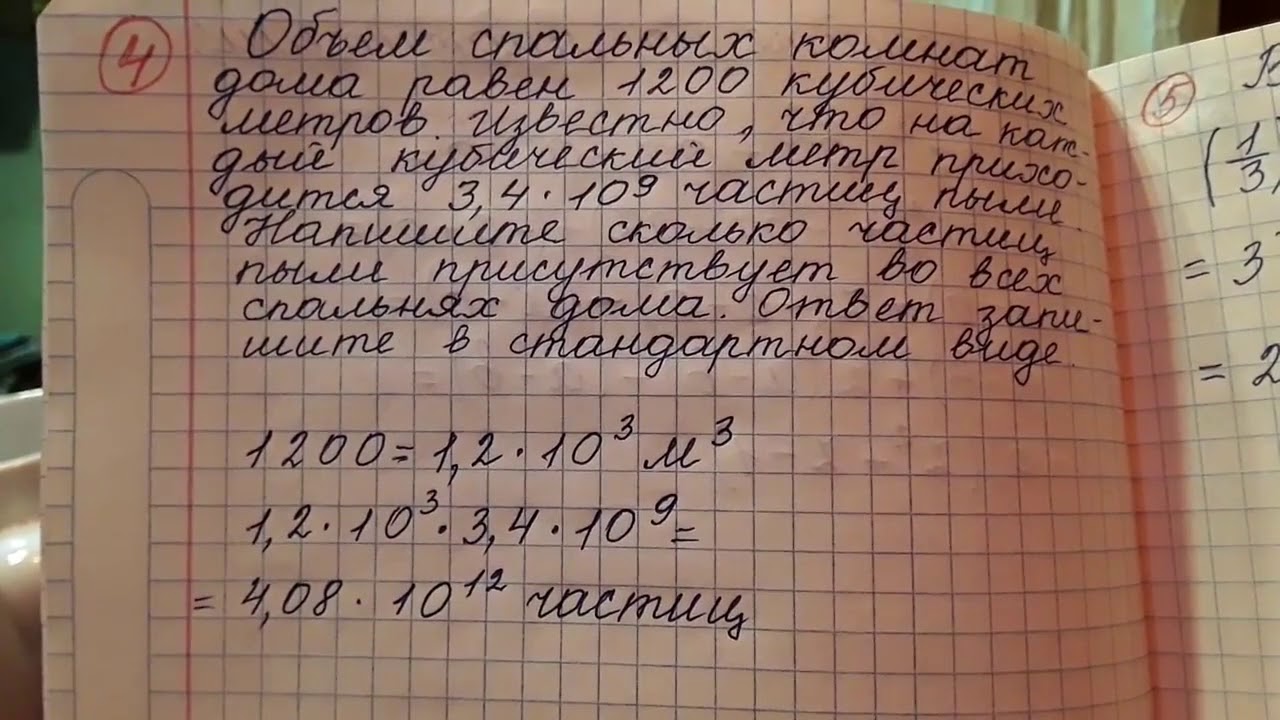 4
Объем спальных комнат
дома равен 1200 кубических
метров. Известно, что на каж-
дый кубический метр прихо-
дится 3,4·10⁹ частиц пыли.
Напишите сколько частиц
пыли присутствует во всех
спальнях дома. Ответ запи-
шите в стандартном виде.
1200=1,2·10³ м³
1,2·10³·3,4·10⁹=
= 4,08·10¹² частиц
5
В
(1/3
= 3
= 2